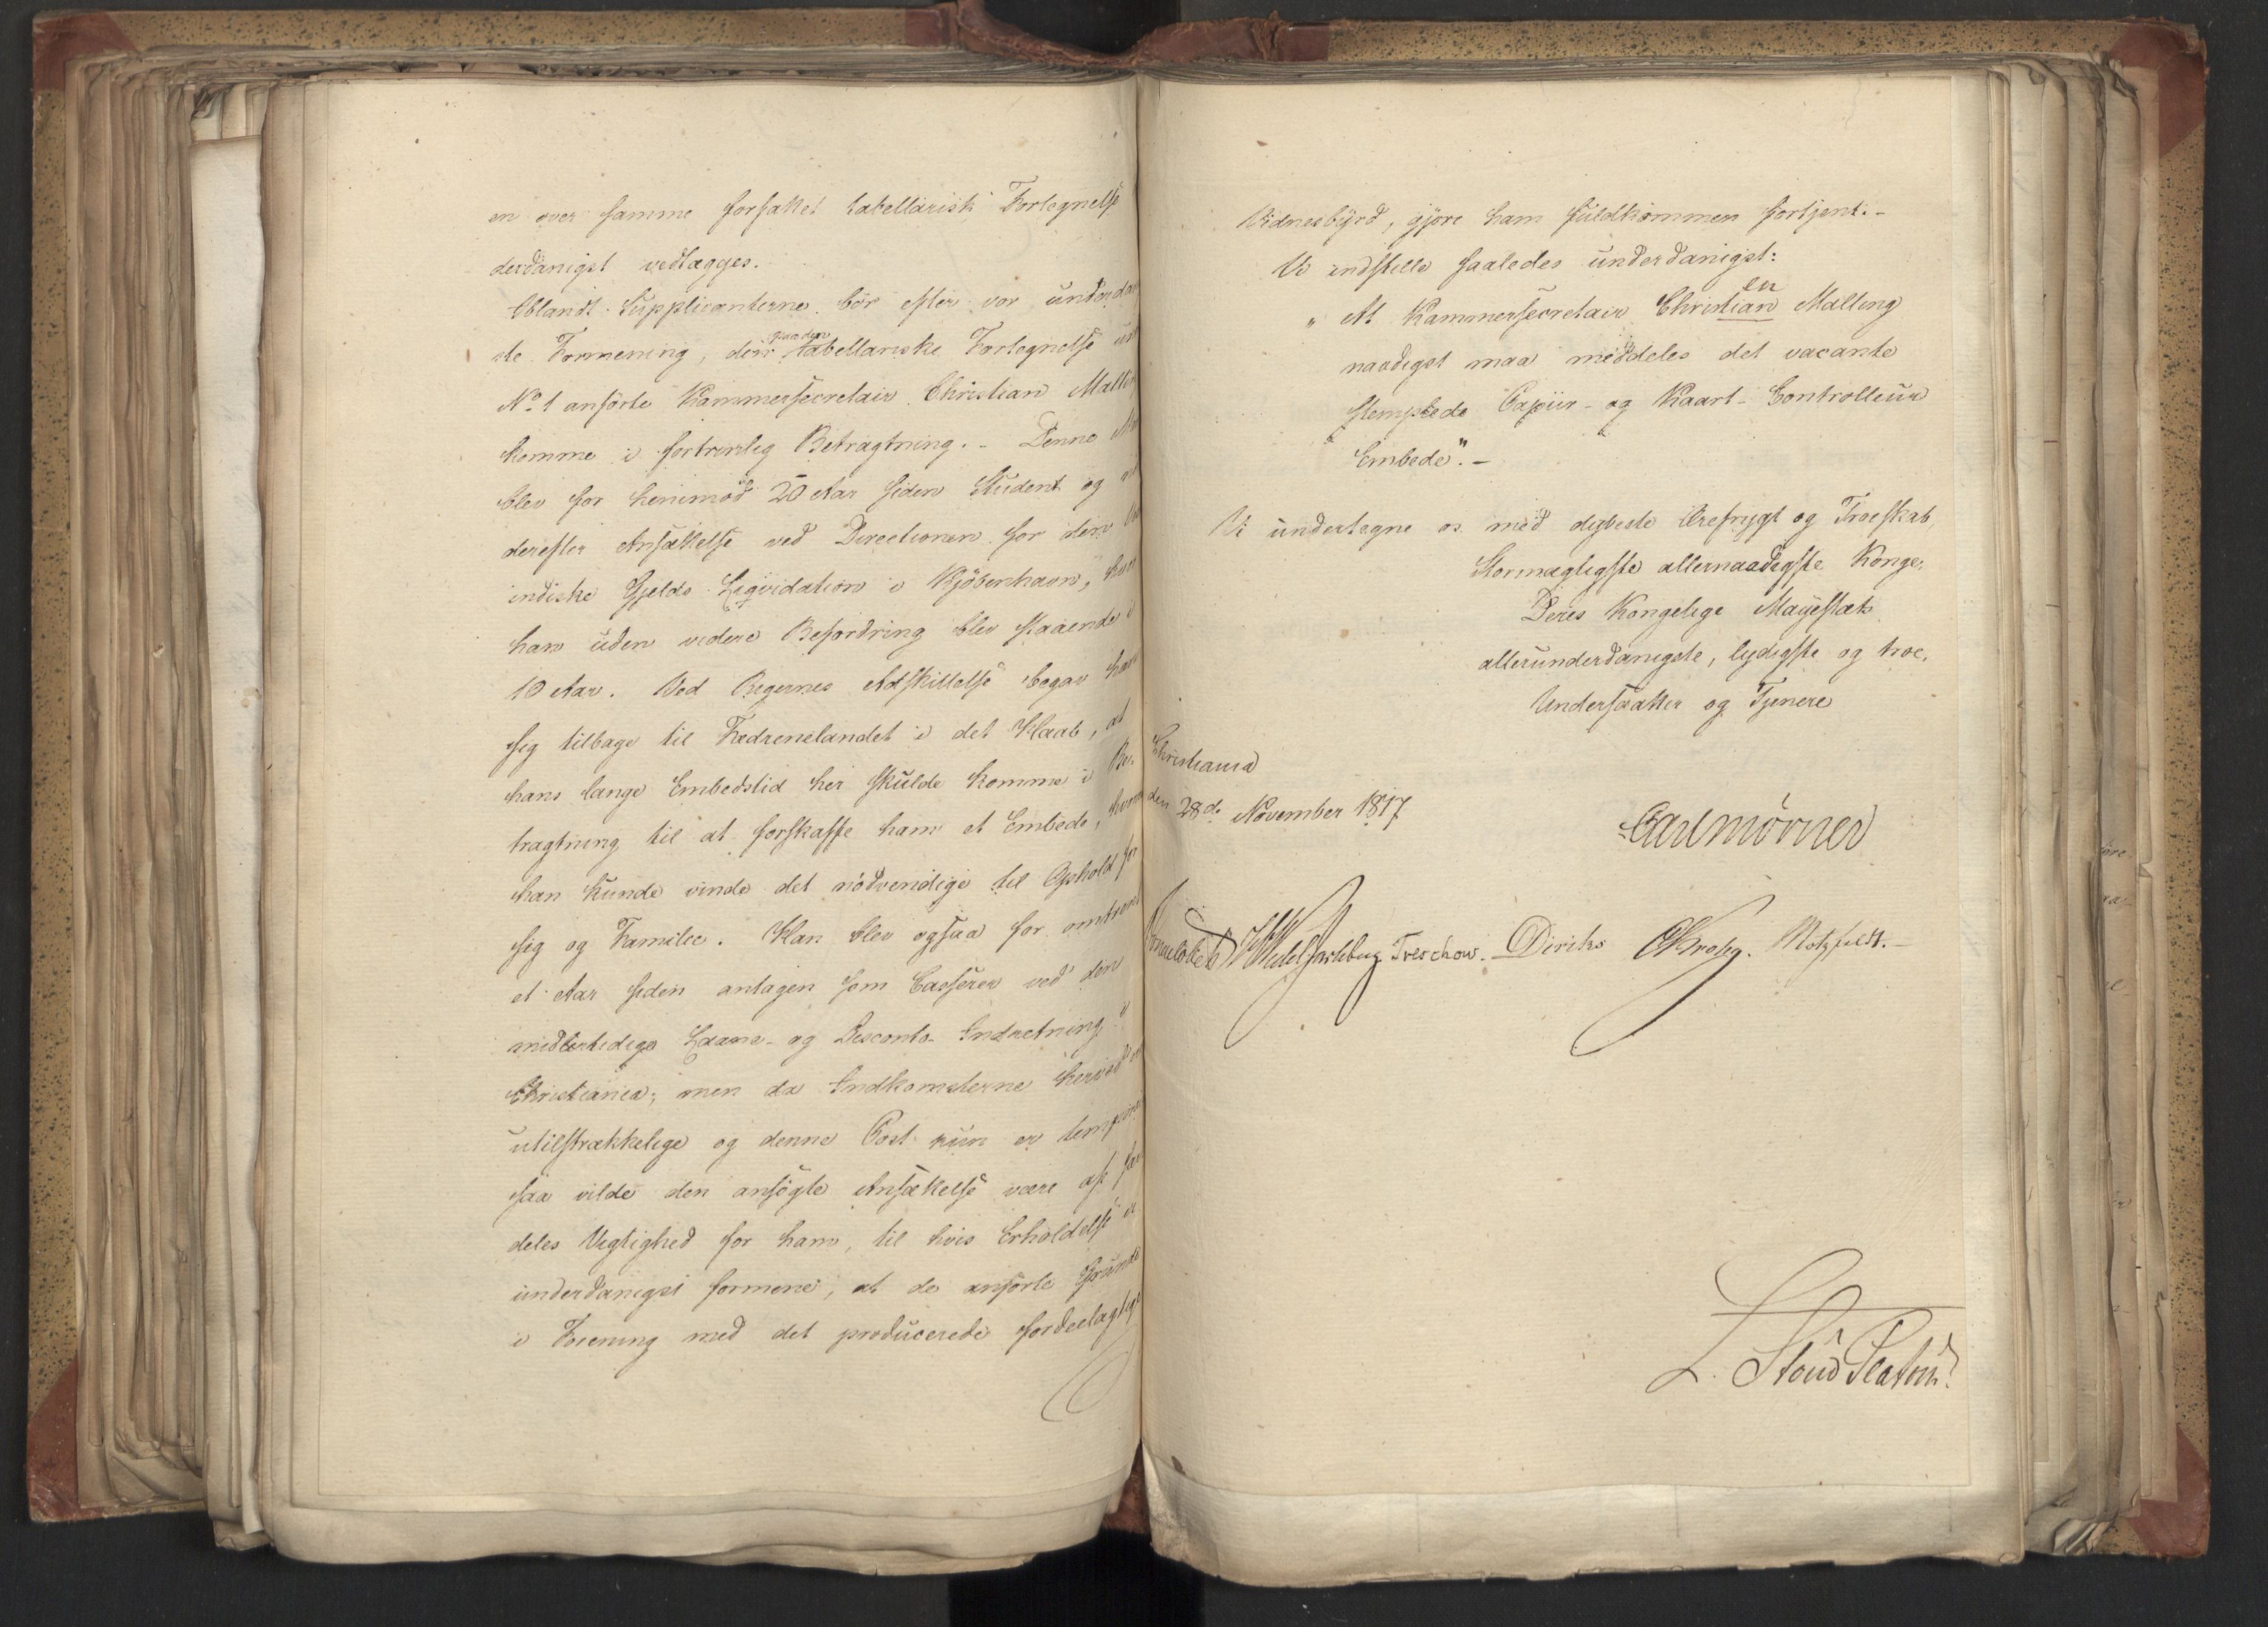 en over samme forfattet tabellarisk Fortegnelse
derdanigst vedlægges.
Iblandt Supplicanterne bör efter vor underda
ste Formening, den paa den tabellariske Fortegnelse un
No 1 anförte Kammersecretair Christian Malling
komme i fortrinlig Betragtning. - Denne
blev for henimod 20 Aar siden Student og
derefter Ansættelse ved Directionen for den
indiske Gjelds Liqvidation i Kjöbenhavn, hvor
han uden videre Befordring blev staaende i
10 Aar. Ved Rigernes Adskillelse begav han
sig tilbage til Fædrenelandet i det Haab, at
hans lange Embedstid her skulde komme i Be-
tragtning til at forskaffe ham et Embede, hvor
han kunde vinde det nödvendige til Ophold for
sig og Familie. Han blev ogsaa for omtrent
et Aar siden antagen som Casserer ved den
midlertidige Laane- og Disconto-Indretning i
Christiania; men da Indkomsterne herved
utilstrækkelige og denne Post kun er temporai
saa vilde den ansögte Ansættelse være af sær
deles Vigtighed for ham, til hvis Erholdelse vi
underdanigst formene, at de anförte Grunde
i Forening med det producerede fordeelagtige
Vidnesbyrd, gjøre ham fuldkommen fortjent. -
Vi indstille saaledes underdanigst:
" At Kammersecretair Christian en Malling
naadigst maa meddeles det vacante
stemplede Papiir- og Kaart-Controlleur
Embede". -
Vi undertegne os med dybeste Ærefrygt og Troeskab,
Stormægtigste allernaadigste Konge,
Deres Kongelige Mayestæts
allerunderdanigste, lydigste og troe,
Undersaatter og Tjenere
Christiania
den 28de November 1817
Carl Mörner
Sommerhielm HWedel Jarlsberg Treschow. Diriks CKrohg. Motzfeldt. -
L. Stoud Platou